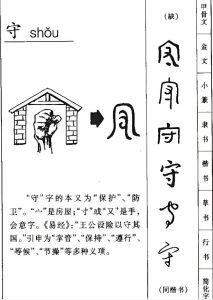 守 shǒu
"守"字的本义为"保护"、"防
卫"。"宀"是房屋；"寸"或"又"是手，
会意字。《易经》："王公设险以守其
国。"引申为"掌管"、"保持"、"遵行"、
"等候"、"节操"等多种义项。
(缺)
守
守
守
(同楷书)
甲骨文
金文
小篆
隶书
楷书
草书
行书
简化字